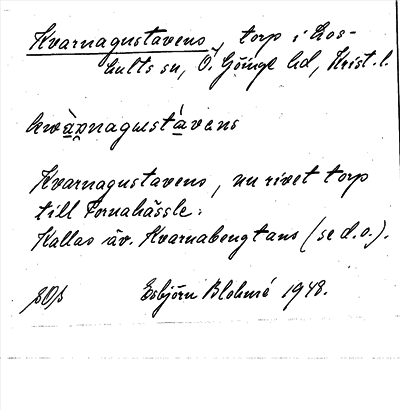 Kvarnagustavens, torp i Los-
hults sn, Ö. Göinge hd, Krist. l.
kwàrnagustávens
Kvarnagustavens, nu rivet torp
till Fornahässle.
Kallas äv. Kvarnabengtans (se d.o.).
Esbjörn Blohmé 1948.